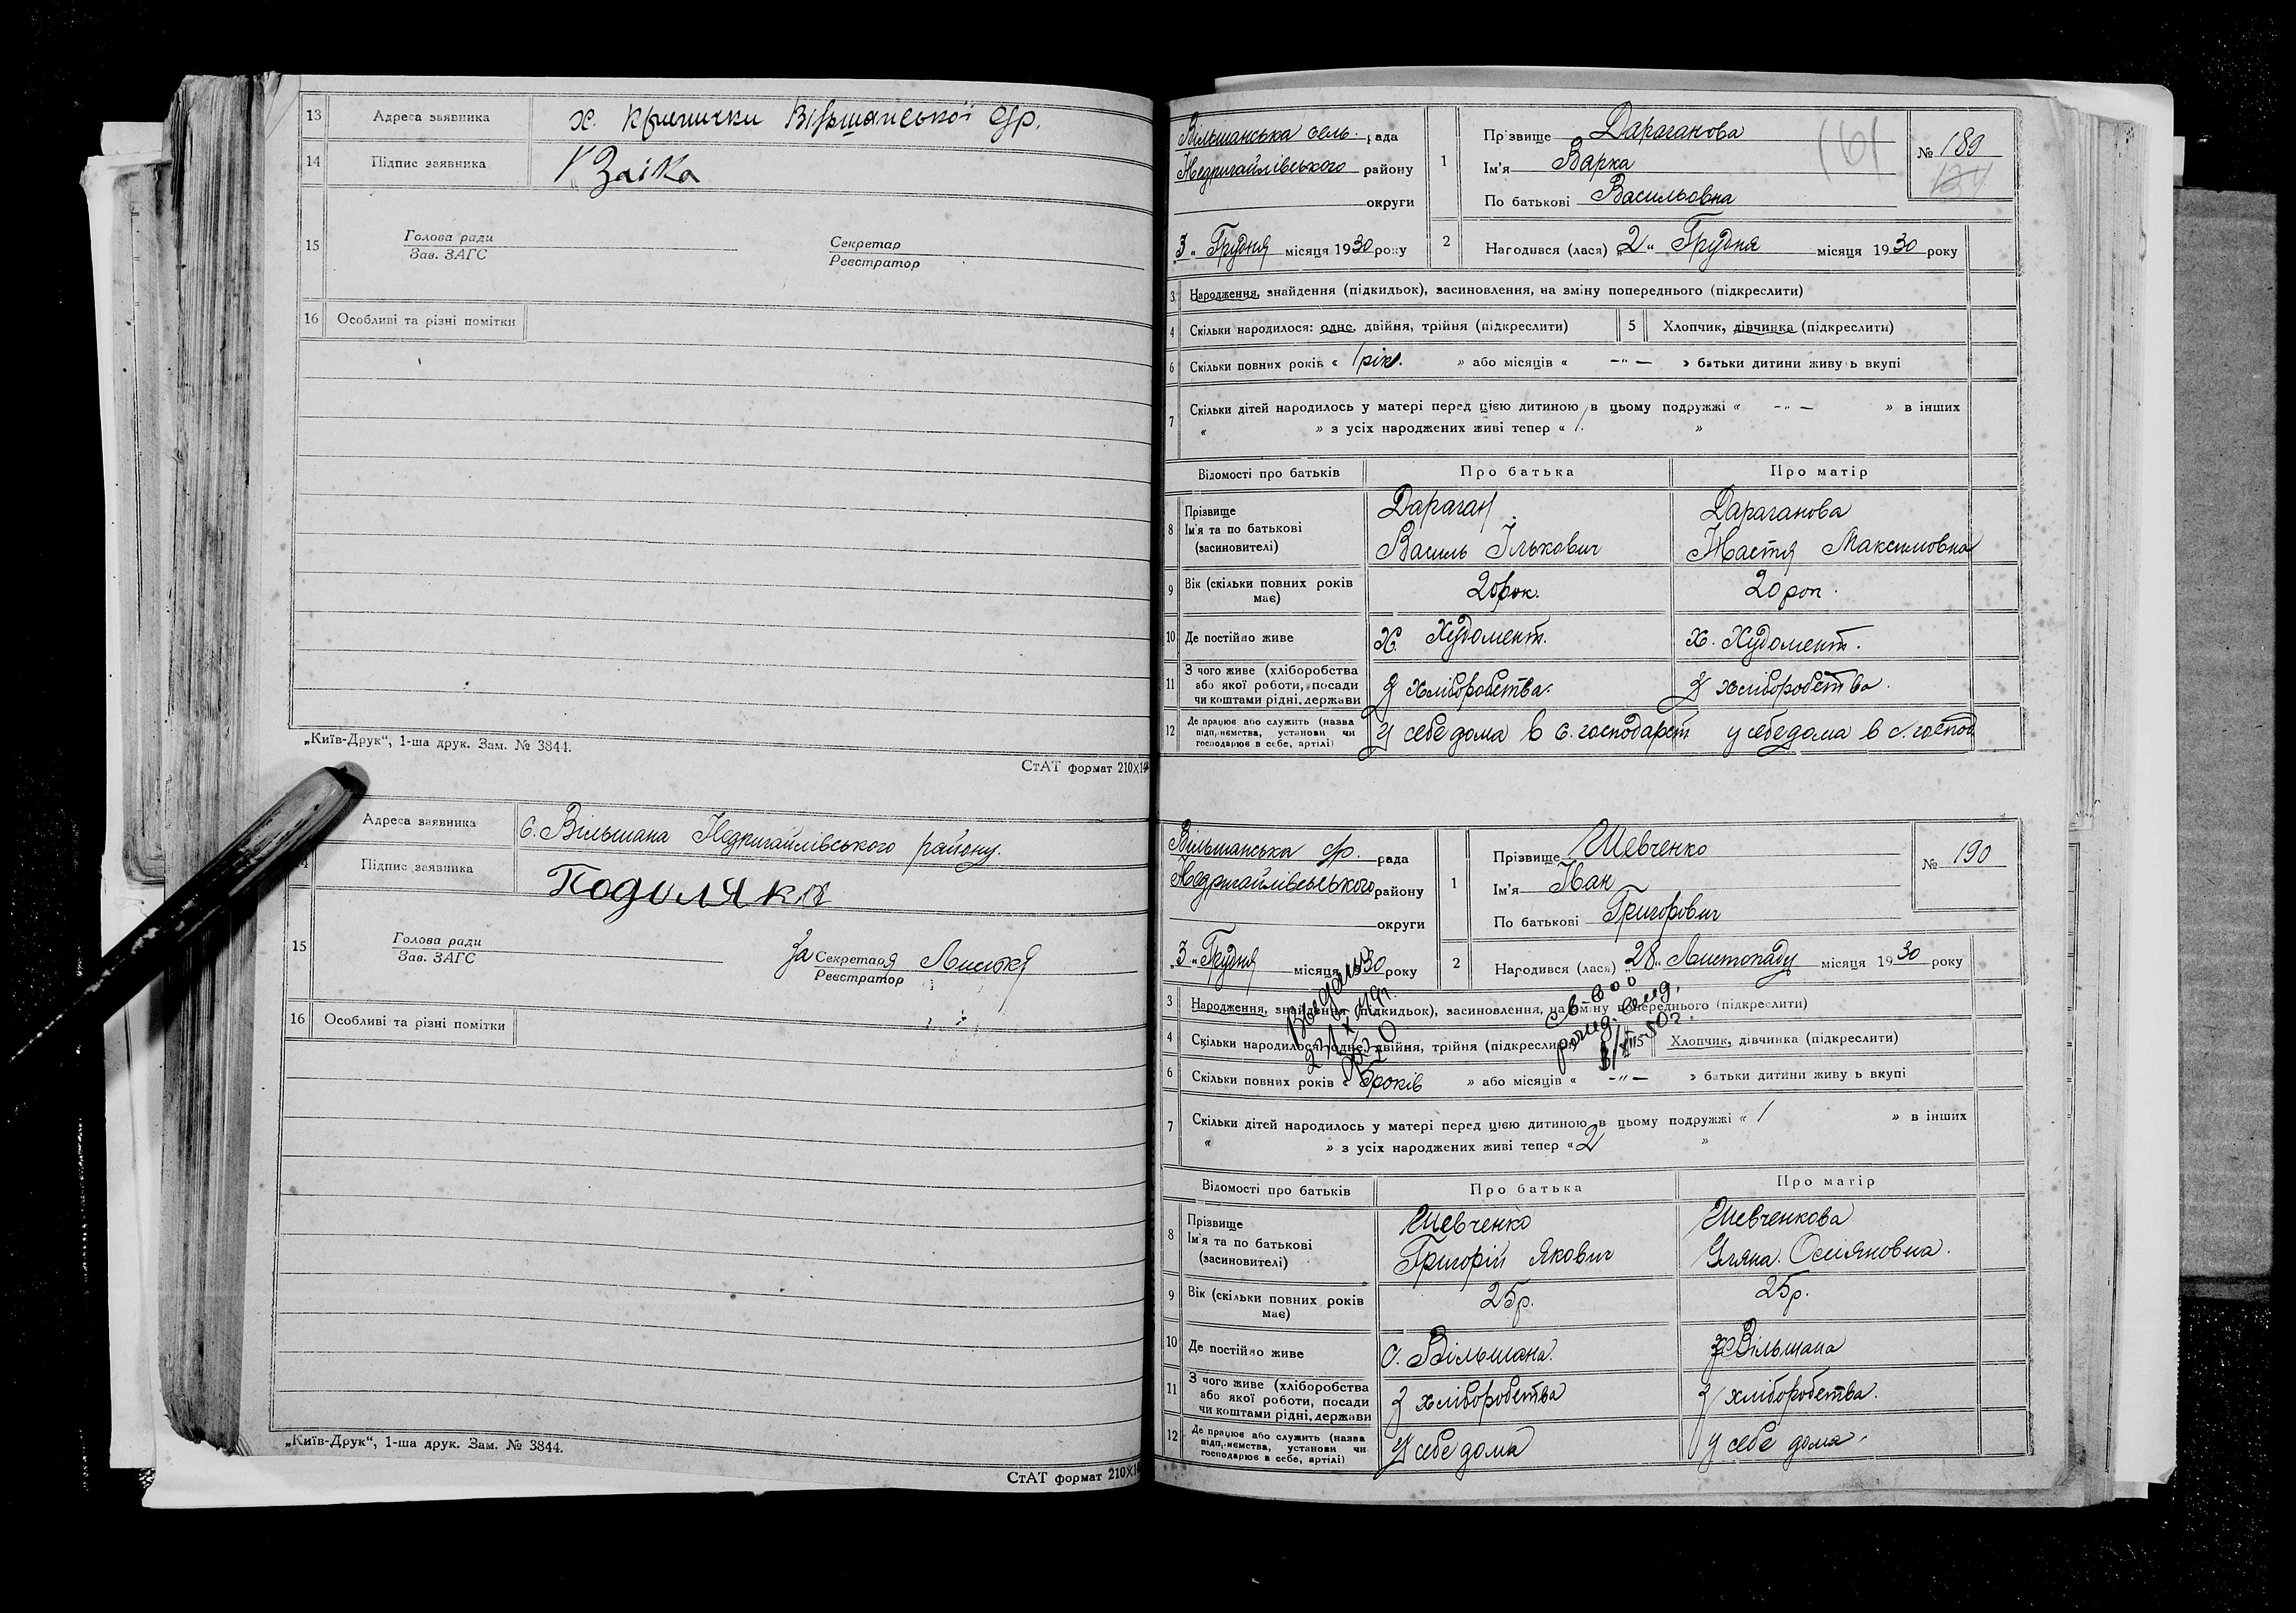 13 Адреса заявника х. Кринички Вільшанської с/р.
14 Підпис заявника Заїка
15 Голова ради Секретар
Зав. ЗАГС Реєстратор
16 Особливі та різні помітки
„Київ-Друк“, 1-ша друк. Зам. № 3844.
СтАТ формат 210×14
Адреса заявника с. Вільшана Недригайлівського району.
Підпис заявника Подоляка
15 Голова ради За Секретаря
Зав. ЗАГС Реєстратор
16 Особливі та різні помітки
„Київ-Друк“, 1-ша друк. Зам. № 3844.
СтАТ формат 210×14
Вільшанська сель. рада
Недригайлівського району
округи
„3“ Грудня місяця 1930 року
1 Прізвище Дараганова
Ім'я Варка
По батькові Васильовна
161
№ 189
2 Народився (лася) „2“ Грудня місяця 1930 року
3 Народження, знайдення (підкидьок), засиновлення, на зміну попереднього (підкреслити)
4 Скільки народилося: одне, двійня, трійня (підкреслити) 5 Хлопчик, дівчинка (підкреслити)
6 Скільки повних років « 1 рік. » або місяців « –"– » батьки дитини живуть вкупі
7 Скільки дітей народилось у матері перед цією дитиною в цьому подружжі « –"– » в інших
« » з усіх народжених живі тепер « 1. »
Відомості про батьків Про батька Про матір
8 Прізвище Дараган Дараганова
Ім'я та по батькові
(засиновителі) Василь Ількович Настя Максимовна
9 Вік (скільки повних років має) 20 рок. 20 рок.
10 Де постійно живе х. Худомент. х. Худомент.
11 З чого живе (хліборобства
або якої роботи, посади
чи коштами рідні, держави З хліборобства. З хліборобства.
12 Де працює або служить (назва
підприємства, установи чи
господарює в себе, артілі) У себе дома в с. господарст у себе дома в с. господ
Вільшанська с/р. рада
Недригайлівського району
округи
„3“ Грудня місяця 1930 року
1 Прізвище Шевченко
Ім'я Іван
По батькові Григорович
№ 190
2 Народився (лася) „28“ Листопаду місяця 1930 року
3 Народження, знайдення (підкидьок), засиновлення, на зміну попереднього (підкреслити)
4 Скільки народилося: одне, двійня, трійня (підкреслити) 5 Хлопчик, дівчинка (підкреслити)
6 Скільки повних років « 5 років » або місяців « –"– » батьки дитини живуть вкупі
7 Скільки дітей народилось у матері перед цією дитиною в цьому подружжі « 1 » в інших
« » з усіх народжених живі тепер « 2 »
Відомості про батьків Про батька Про матір
8 Прізвище Шевченко Шевченкова
Ім'я та по батькові
(засиновителі) Григорій Якович Уляна
9 Вік (скільки повних років має) 25 р. 25 р.
10 Де постійно живе с. Вільшана. Вільшана
11 З чого живе (хліборобства
або якої роботи, посади
чи коштами рідні, держави З хліборобства З хліборобства.
12 Де працює або служить (назва
підприємства, установи чи
господарює в себе, артілі) У себе дома У себе дома.